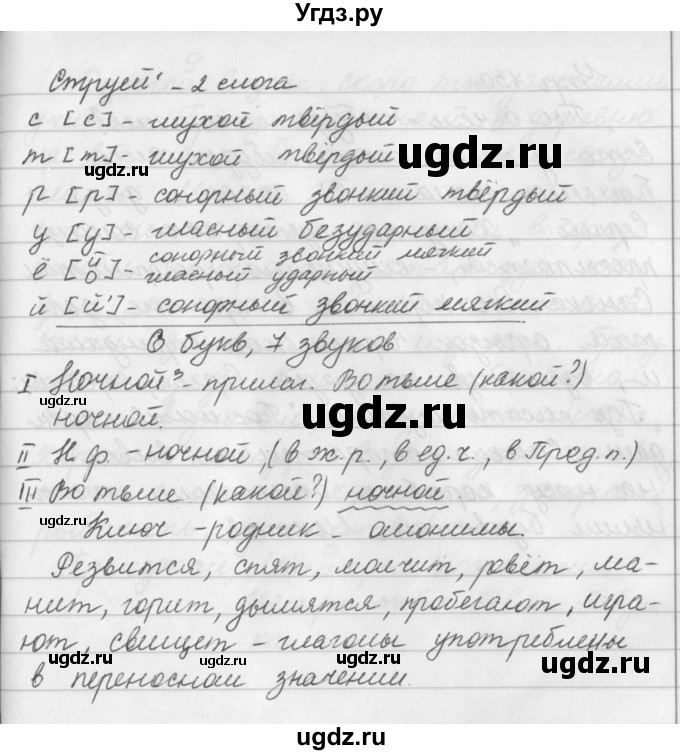 Угдз.ру
Струей¹ - 2 слога
с [с] - глухой твёрдый
т [т] - глухой твёрдый
ugdz.ru
р [р] - сонорный звонкий твёрдый
ugdz.ru
у [у] - гласный безударный
ё [й о] - сонорный звонкий мягкий
гласный ударный
й [й'] - сонорный звонкий мягкий
6 букв, 7 звуков
ugdz.ru
I Ночной³ - прилаг. Во тьме (какой?)
ночной.
ugdz.ru
II Н.ф. - ночной, (в ж.р., в ед.ч., в Пред.п.)
III Во тьме (какой?) ночной
ugdz.ru
ugdz.ru
Ключ - родник - омонимы.
Резвится, спят, молчит, ревёт, ма-
нит, горит, дымятся, пробегают, игра-
ют, свищет - глаголы употреблены
ugdz.ru
ugdz.ru
ugdz.ru
в переносном значении.
ugdz.ru